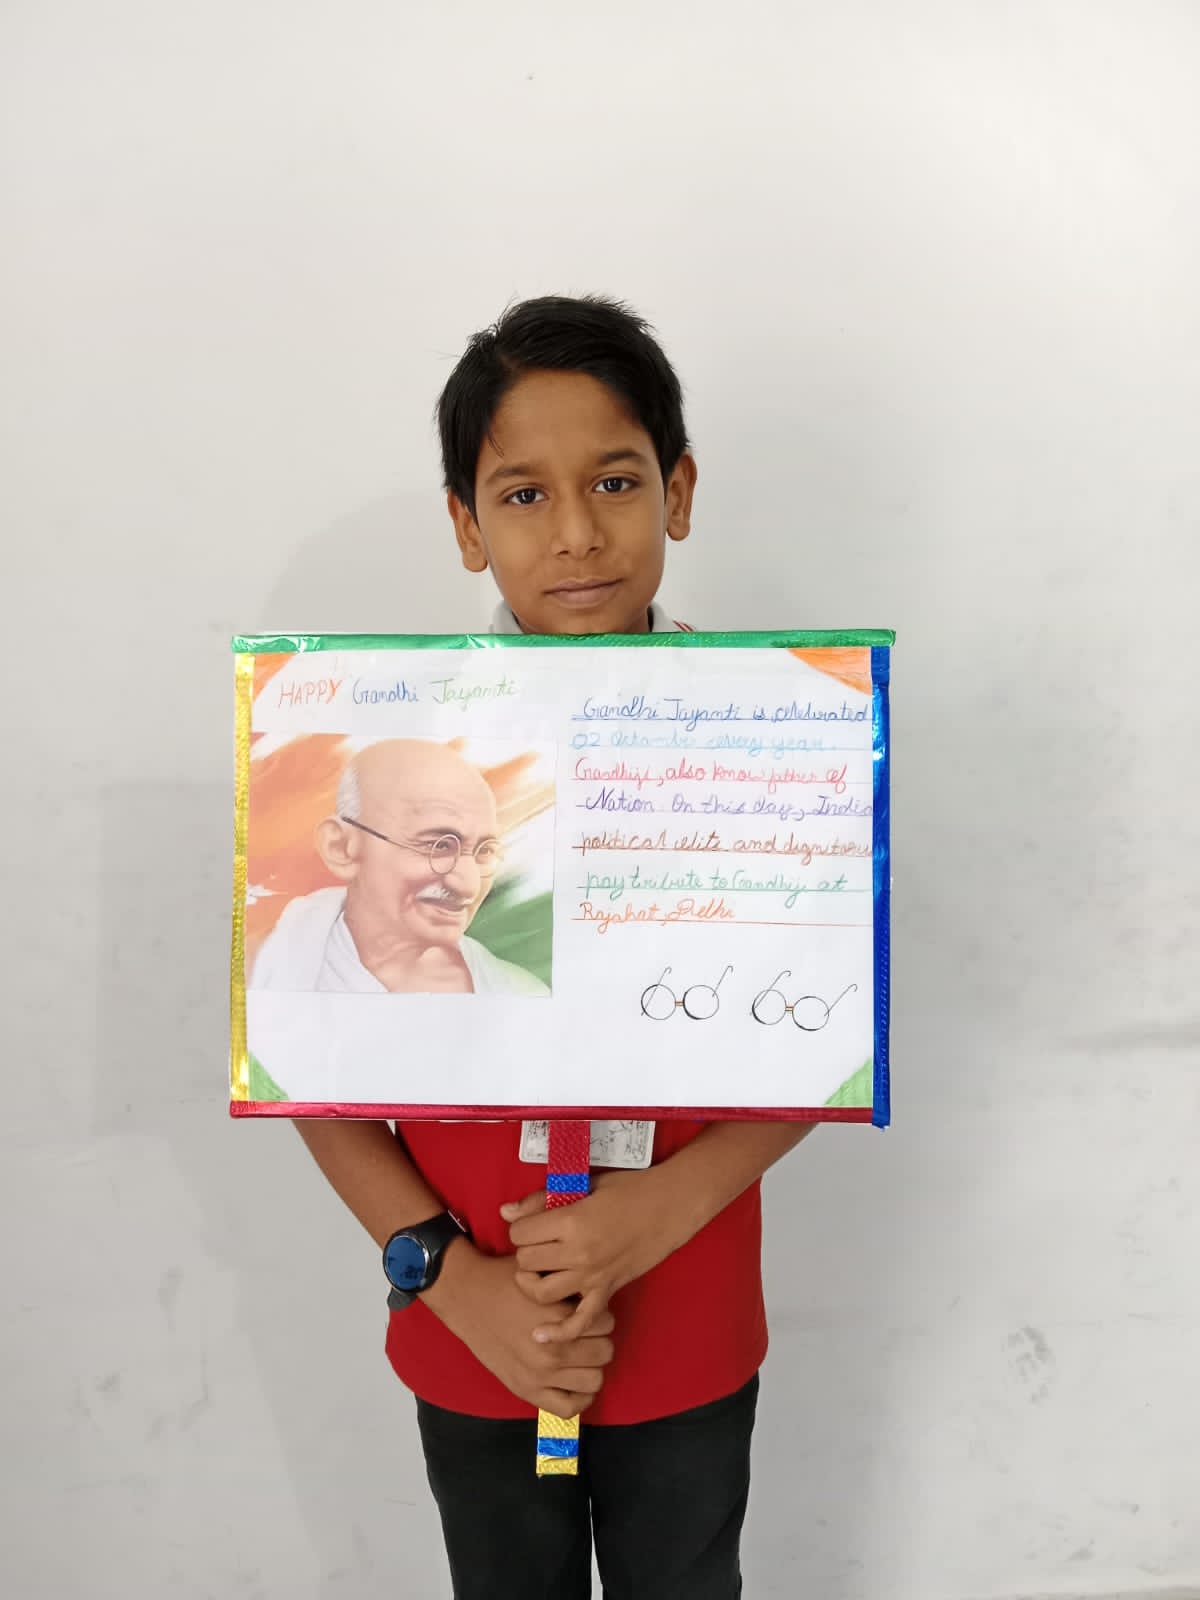 HAPPY Gandhi Jayanti
Gandhi Jayanti is celebrated
02 every year.
Gandhiji, also know father of
Nation. On this day, India
political elite and
pay tribute to Gandhiji at
Rajahat, Delhi